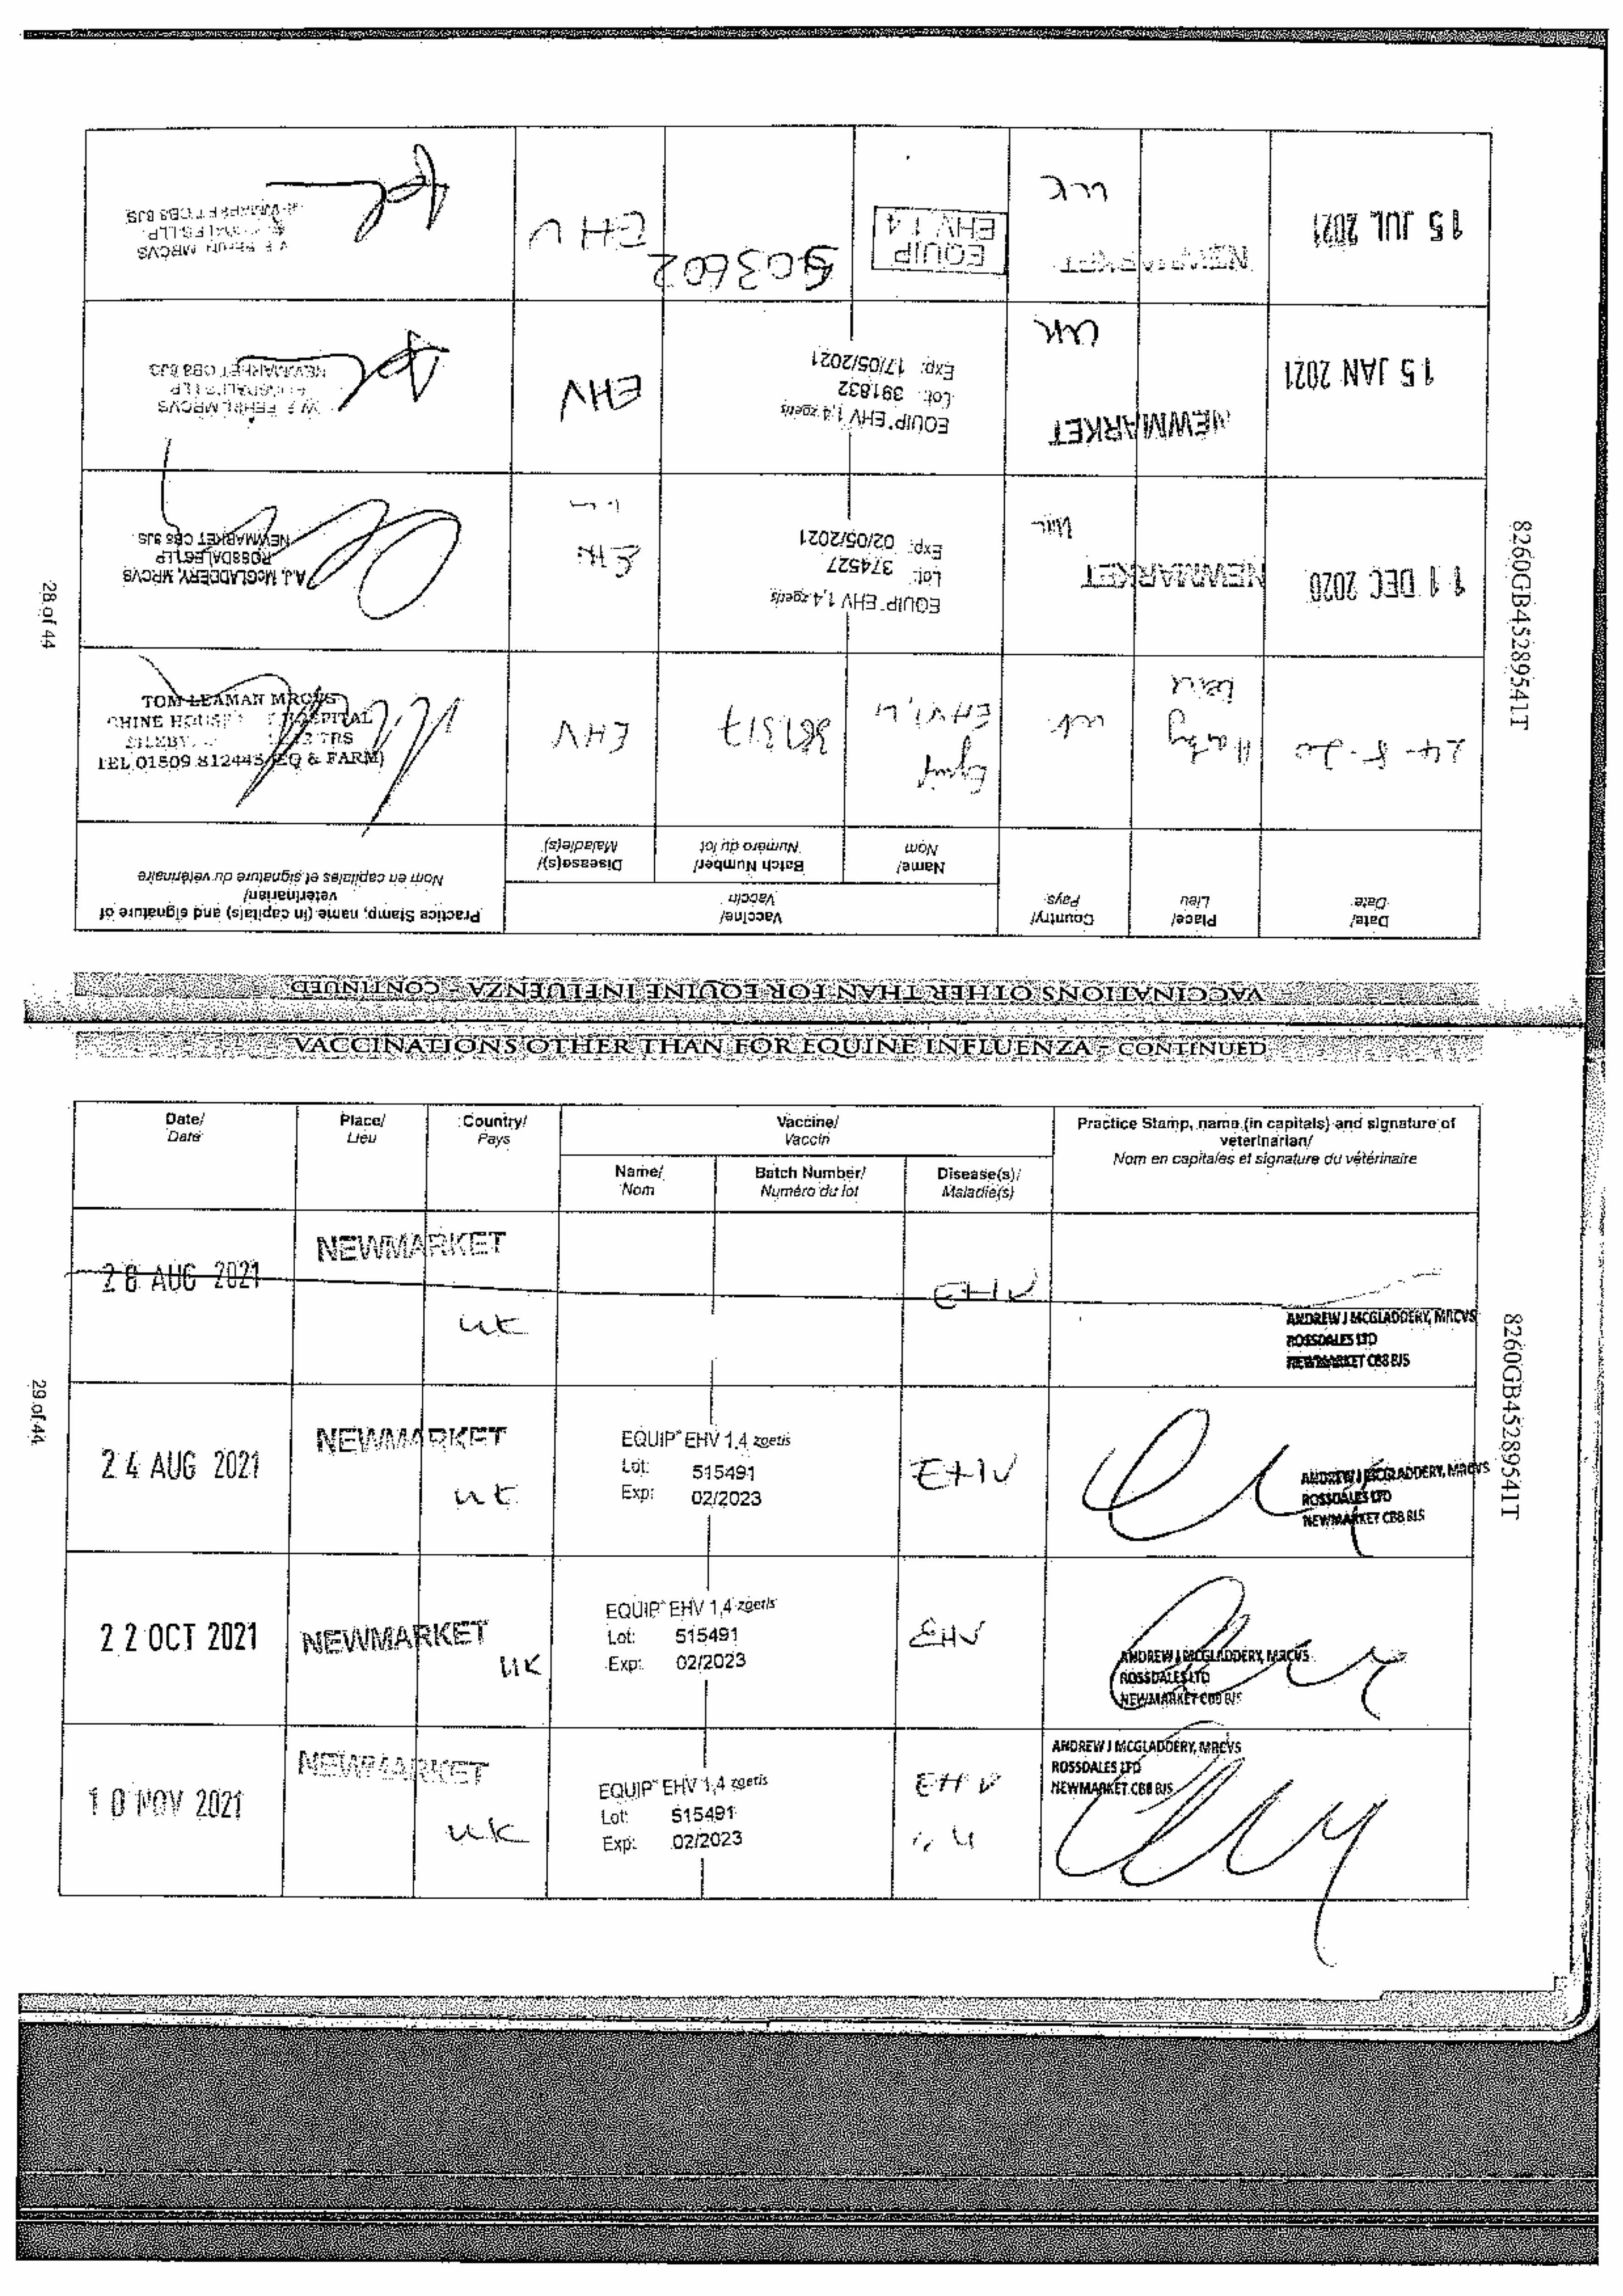 VACCINATIONS OTHER THAN FOR EQUINE INFLUENZA - CONTINUED
Date/
Date
Place/
Lieu
Country/
Pays
Vaccine/
Vaccin
Name/
Nom
Batch Number/
Numéro du lot
Disease(s)/
Maladie(s)
Practice Stamp, name (in capitals) and signature of
veterinarian/
Nom en capitales et signature du vétérinaire
24-8-20
UK
Equip
EHV 1,4
EHV
TOM LEAMAN MRCVS
CHINE HOUSE HOSPITAL
TEL 01509 812445 (EQ & FARM)
11 DEC 2020
NEWMARKET
UK
EQUIP EHV 1,4 zoetis
Lot: 374527
Exp: 02/05/2021
A.J. McGLADDERY, MRCVS
ROSSDALES LLP
NEWMARKET CB8 8JS
15 JAN 2021
NEWMARKET
UK
EQUIP EHV 1,4 zoetis
Lot: 391832
Exp: 17/05/2021
EHV
NEWMARKET CB8 8JS
15 JUL 2021
NEWMARKET
UK
EQUIP
EHV 1.4
503602
EHV
NEWMARKET CB8 8JS
28 of 44
8260GB45289541T
VACCINATIONS OTHER THAN FOR EQUINE INFLUENZA - CONTINUED
Date/
Date
Place/
Lieu
Country/
Pays
Vaccine/
Vaccin
Name/
Nom
Batch Number/
Numéro du lot
Disease(s)/
Maladie(s)
Practice Stamp, name (in capitals) and signature of
veterinarian/
Nom en capitales et signature du vétérinaire
AUG 2021
NEWMARKET
UK
EHV
ANDREW J MCGLADDERY, MRCVS
ROSSDALES LTD
NEWMARKET CB8 8JS
24 AUG 2021
NEWMARKET
UK
EQUIP EHV 1,4 zoetis
Lot: 515491
Exp: 02/2023
EHV
ANDREW J MCGLADDERY, MRCVS
ROSSDALES LTD
NEWMARKET CB8 8JS
22 OCT 2021
NEWMARKET
UK
EQUIP EHV 1,4 zoetis
Lot: 515491
Exp: 02/2023
EHV
ANDREW J MCGLADDERY, MRCVS
ROSSDALES LTD
NEWMARKET CB8 8JS
10 NOV 2021
NEWMARKET
UK
EQUIP EHV 1,4 zoetis
Lot: 515491
Exp: 02/2023
EHV
ANDREW J MCGLADDERY, MRCVS
ROSSDALES LTD
NEWMARKET CB8 8JS
29 of 44
8260GB45289541T